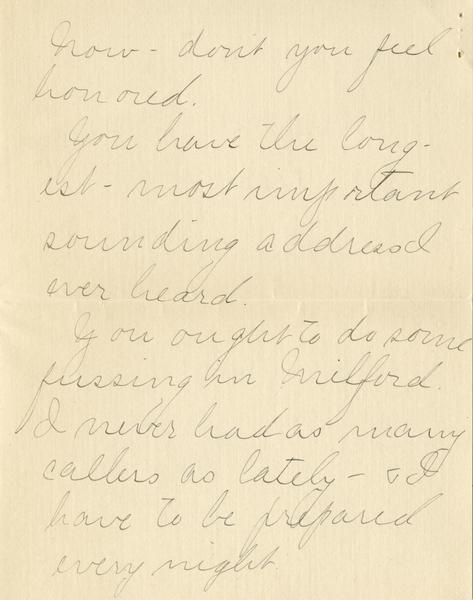 Now - don't you feel
honored.
You have the long-
est - most important
sounding address I
ever heard.
You ought to do some
fussing in Milford.
I never had as many
callers as lately - & I
have to be prepared
every night.